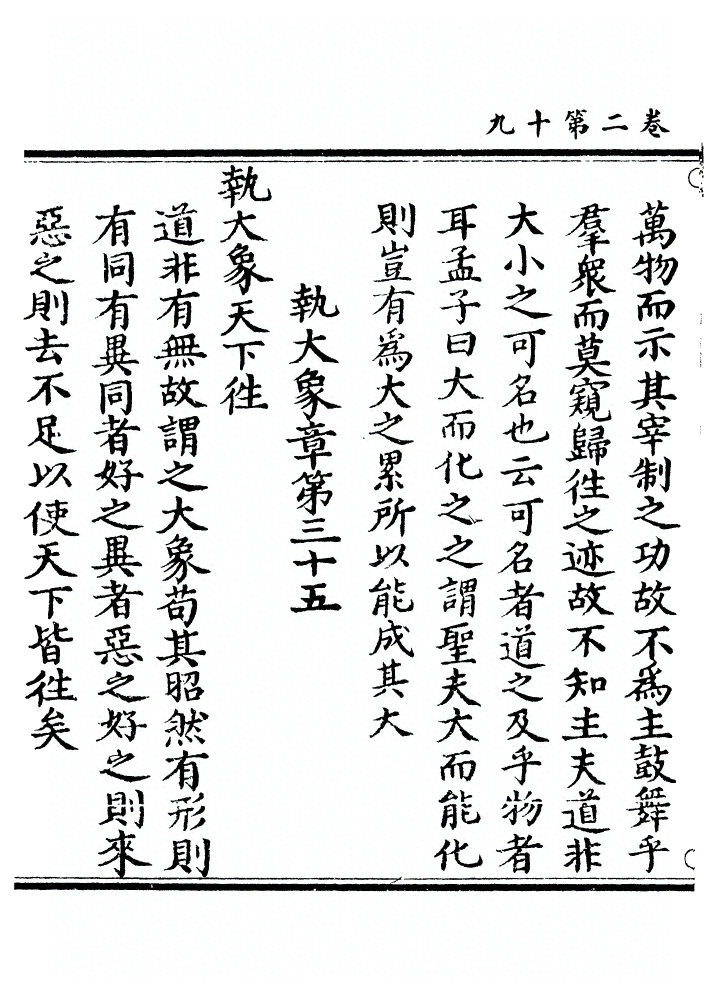 卷二第十九
萬物而示其宰制之功故不為主鼓舞乎
羣衆而莫窺歸徃之迹故不知主夫道非
大小之可名也云可名者道之及乎物者
耳孟子曰大而化之之謂聖夫大而能化
則豈有為大之累所以能成其大
執大象章第三十五
執大象天下徃
道非有無故謂之大象苟其昭然有形則
有同有異同者好之異者惡之好之則來
惡之則去不足以使天下皆徃矣